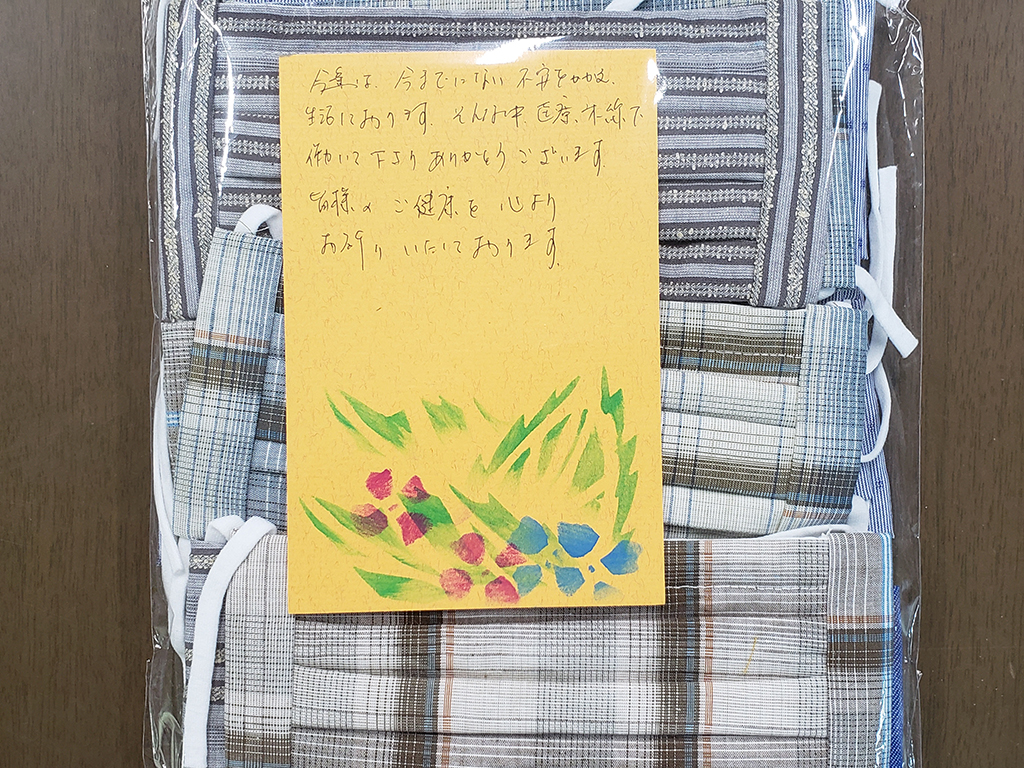 今までにない 不安をかかえ、
生活しております。そんな中、医療 で
働いて下さり ありがとうございます。
皆様の ご健康を 心より
お祈り いたしております。